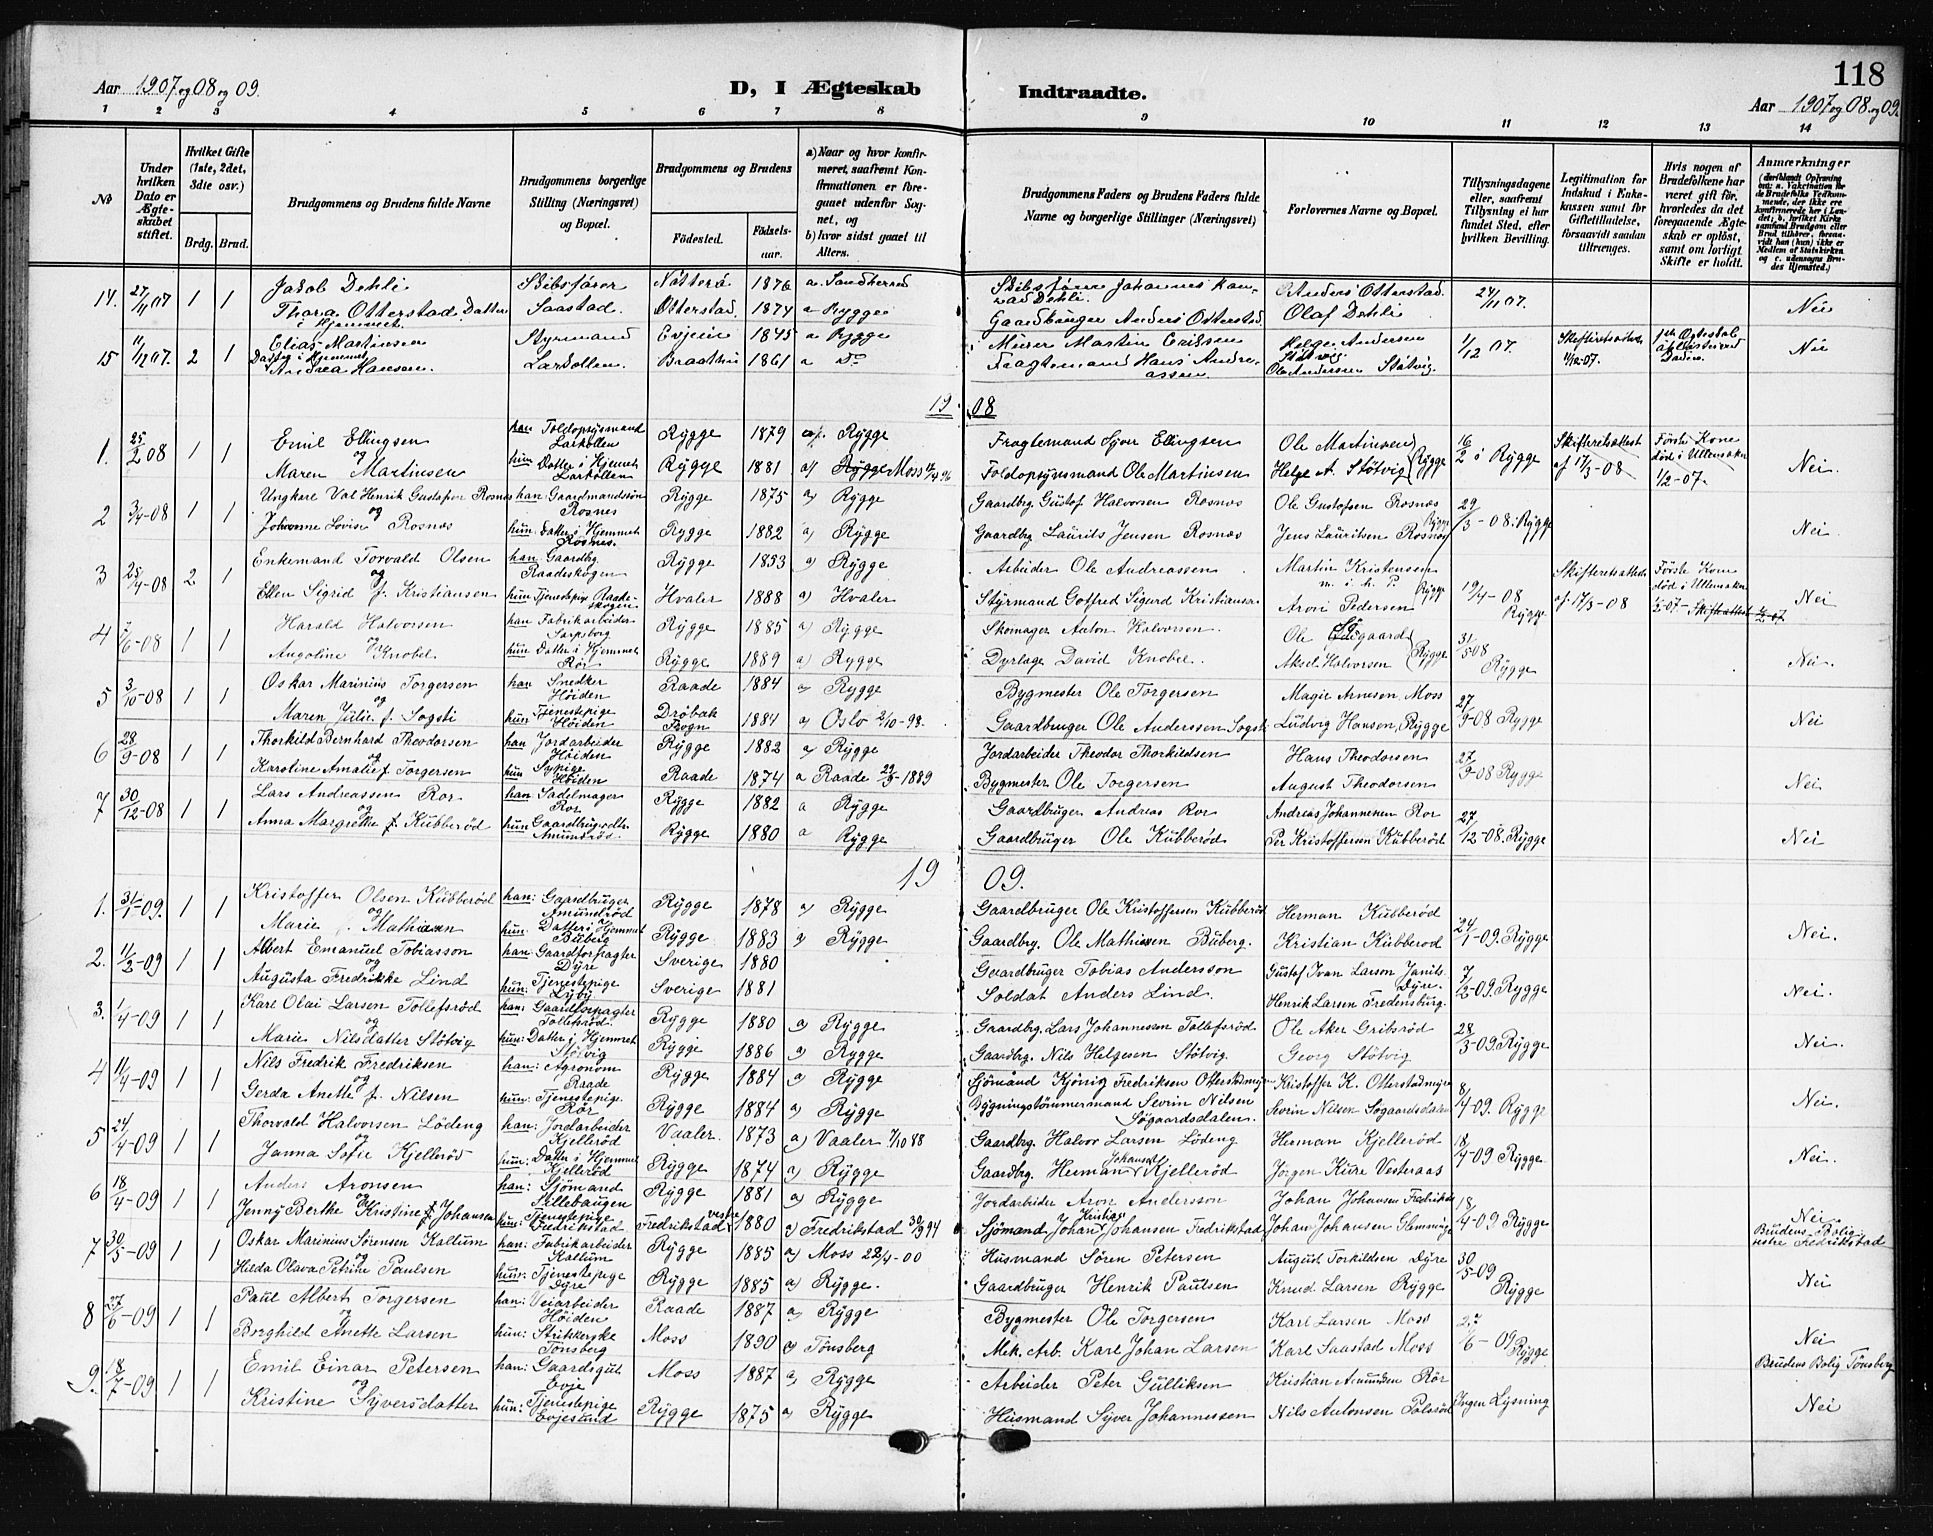 118
Aar 1907 og 08 og 09.
D, I Ægteskab Indtraadte.
Aar 1907 og 08 og 09.
1 2 3 4 5 6 7 8 9 10 11 12 13 14
No
Under hvilken Dato er Ægteskabet stiftet.
Hvilket Gifte (1ste, 2det, 3die osv.)
Brdg. Brud.
Brudgommens og Brudens fulde Navne
Brudgommens borgerlige Stilling (Næringsvei) og Bopæl.
Brudgommens og Brudens
Fødested. Fødselsaar.
a) Naar og hvor konfirmeret, saafremt Konfirmationen er foregaaet udenfor Sognet, og
b) hvor sidst gaaet til Alters.
Brudgommens Faders og Brudens Faders fulde Navne og borgerlige Stillinger (Næringsvei)
Forlovernes Navne og Bopæl.
Tillysningsdagene eller, saafremt Tillysning ei har fundet Sted, efter hvilken Bevilling.
Legitimation for Indskud i Enkekassen samt for Giftetilladelse, forsaavidt saadan tiltrænges.
Hvis nogen af Brudefolkene har været gift før, hvorledes da det foregaaende Ægteskab er opløst, samt om lovligt Skifte er holdt.
Anmærkninger
14. 27/11 07 1 1 Jakob Dehli Skibsfører Nøtterø 1876 a. Sandherred Skibsfører Johannes Dehli. Anders Otterstad. 24/11 07.
Thora Otterstad Datter i Hjemmet Saastad. Otterstad. 1874 a Rygge Gaardbruger Anders Otterstad. Olaf Dehli Nei
15 11/12 07. 2 1 Elias Martinsen Styrmand Evjein 1845 a Rygge Murer Martin Eriksen Helge Andersen Støtvig 1/12 07. Skifteretsattest 1/12-07.
Datter i Hjemmet Andrea Hansen. Larkollen. 1861 a Do Fragtemand Hans Andreassen. Ole Andersen Støtvig. Nei
19 08
1. 25/2 08 1 1 Emil Ellingsen han Toldopsysmand Larkollen Rygge 1879 a/. Rygge Fragtemand Ellingsen Ole Martinsen 16/2 i Rygge Skifteretsattest Første Kone
og Maren Martinsen hun Datter i Hjemmet Larkollen Rygge 1881 a) Rygge Moss Toldopsysmand Ole Martinsen Helge A. Støtvig Rygge af 17/3-08 død i Ullensaker 1/2-07. Nei
2 3/4-08 1 1 Ungkarl Val Henrik Gustafsen Rosnes han: Gaardmandssøn Rosnes Rygge 1875 a) Rygge Gaardbg Gustof Halvorsen Rosnæs Ole Gustofsen Rosnæs 29/3-08. Rygge
og Lovise Rosnæs hun: Datter i Hjemmet Rosnes. Rygge 1882 a) Rygge Gaardbg Laurits Jensen Rosnæs Jens Lauritsen Rosnæs Rygge Nei.
3 25/4-08 2 1 Enkemand Torvald Olsen han: Gaardbg Raadeskogen Rygge 1853 a) Rygge Arbeider Ole Andreassen Martin Kristensen Skifteretsattest Første Kone
og Ellen Sigrid f. Kristiansen hun Tjenestepige Raadeskogen Hvaler 1888 a) Hvaler Styrmand Gotfred Sigurd Kristiansen Pedersen Rygge 19/4-08 Rygge af 17/3-08 død i Ullensaker Nei
4 /6-08 1 1 Harald Halvorsen han Fabrikarbeider Sarpsborg Rygge 1885 a) Rygge Skomager Anton Halvorsen. Ole 31/5 08
og Angoline Knobel hun Datter i Hjemmet Rør Rygge 1889 a) Rygge Dyrlæge David Knobel. Aksel Halvorsen Rygge Rygge Nei.
5 3/10-08 1 1 Oskar Marinius Torgersen han Snedker Høiden Raade 1884 a) Rygge Bygmester Ole Torgersen Magie Arnesen Moss 27/9-08 Rygge
og Maren Julie f. Sogsti hun Tjenestepige Høiden Drøbak Sogn 1884 a) Oslo 2/10-98. Gaardbruger Ole Anderssen Sogsti Ludvig Hansen, Rygge Nei
6 28/9-08 1 1 Thorkild Bernhard Theodorsen han Jordarbeider Høiden Rygge 1882 a) Rygge Jordarbeider Theodor Thorkildsen Hans Theodorsen 27/9-08 Rygge
og Karoline Amalie f. Torgersen hun Sypige Høiden Raade 1874 a Raade 29/9-1889 Bygmester Ole Torgersen August Theodorsen Nei
7 30/12-08 1 1 Lars Andreassen Ror han: Sadelmager Ror Rygge 1882 a Rygge Gaardbruger Andreas Ror Andreas Johannesen Ror 27/12-08. Rygge
og Anna Margrethe f. Kubberød hun Gaardbrugerdtr. Amundrød Rygge 1880 a Rygge Gaardbruger Ole Kubberød Per Kristoffersen Kubberød Nei
19 09.
1. 31/1-09. 1 1 Kristoffer Olsen Kubberød han: Gaardbruger Amundrød Rygge 1878 a) Rygge Gaardbruger Ole Kristoffersen Kubberød Herman Kubberød 24/1-09. Rygge
og Marie Mathiesen hun: Datter i Hjemmet Buberg Rygge 1883 a) Rygge Gaardbrg. Ole Mathiesen Buberg. Kristian Kubberød Nei.
2. 11/2-09 1 1 Albert Emanuel Tobiasson han: Gaardforpagter Dyre Sverige 1880 Gaardbruger Tobias Andersson Gustof Ivan Larson Dyre. 7/2-09. Rygge
og Augusta Fredrikke Lind hun: Tjenestepige Lyby Sverige 1881 Soldat Anders Lind. Henrik Larsen Fredensburg. Nei.
3. 1/4-09 1 1 Karl Olai Larsen Tollefsrød han: Gaardforpagter Tollefsrød. Rygge 1880 a) Rygge Gaardbg. Lars Johannessen Tollefsrød Ole Aker Gribsrød 28/3-09. Rygge
og Marie Nilsdatter Støtvig hun: Datter i Hjemmet Støtvig Rygge 1886 a) Rygge Gaardbrg. Nils Helgesen Støtvig Georg Støtvig Nei.
4 11/4-09 1 1 Nils Fredrik Fredriksen han: Agronom Raade Rygge 1884 a) Rygge Sjømand Kjønig Fredriksen Otterstadmyr Kristoffer K. Otterstadmyr 8/4-09. Rygge
og Gerda Anette f. Nilsen hun: Tjenestepige. Rør Rygge 1884 a) Rygge Bygningstømmermand Sevrin Nilsen Søgaardsdalen. Sevrin Nilsen Søgaardsdalen Nei.
5 24/4-09 1 1 Thorvald Halvorsen Lødeng han: Jordarbeider Kjellerød Vaaler. 1873 a) Vaaler 7/10 88 Gaardbrg. Halvor Larsen Lødeng Herman Kjellerød 18/4-09 Rygge.
og Janna Sofie Kjellerød hun: Datter i Hjemmet Kjellerød Rygge 1874 a) Rygge Gaardbrg. Herman Johansen Kjellerød Jørgen Kure Vesteraas Nei.
6 18/4-09 1 1 Anders Aronsen han: Sjømand Sillebaugen Rygge 1881 a) Rygge Jordarbeider Aron Andersson Johan Johansen Fredrikstad 18/4-09 Rygge
og Jenny Berthe Kristine f. Johansen hun: Tjenestepige Fredrikstad Fredrikstad vestre 1880 a) Fredrikstad 30/9 94 Sjømand Johan Kristian Johansen Fredrikstad Johan Johansen Glemminge Nei Brudens Bolig: vestre Fredrikstad
7 30/5-09 1 1 Oskar Marinius Sørensen Kallum han: Fabrikarbeider Kallum Rygge 1885 a) Moss 22/4-00 Husmand Søren Petersen August Torkildsen Dyre 30/5-09
Hilda Olava Petrine Paulsen hun: Tjenestepige Dyre Rygge 1885 a) Rygge. Gaardbruger Henrik Paulsen Knud Larsen Rygge Rygge Nei
8 27/6-09 1 1 Paul Albert Torgersen han: Veiarbeider Høiden Raade 1887 a) Rygge Bygmester Ole Torgersen Karl Larsen Moss 27/6-09
og Borghild Anette Larsen hun: Strikkerske Tønsberg Moss 1890 a) Tønsberg Mek. Arb. Karl Johan Larsen Karl Saastad Moss Rygge Nei Brudens Bolig Tønsberg
9. 18/7-09 1 1 Emil Einar Petersen han: Gaardsgut Evje Moss 1887 a) Rygge Arbeider Peter Gulliksen Kristian Amundsen Rør
og Kristine Syversdatter hun: Tjenestepige Evjesund Rygge 1875 a) Rygge Husmand Syver Johannessen Nils Antonsen Palsrød Ingen Lysning Nei